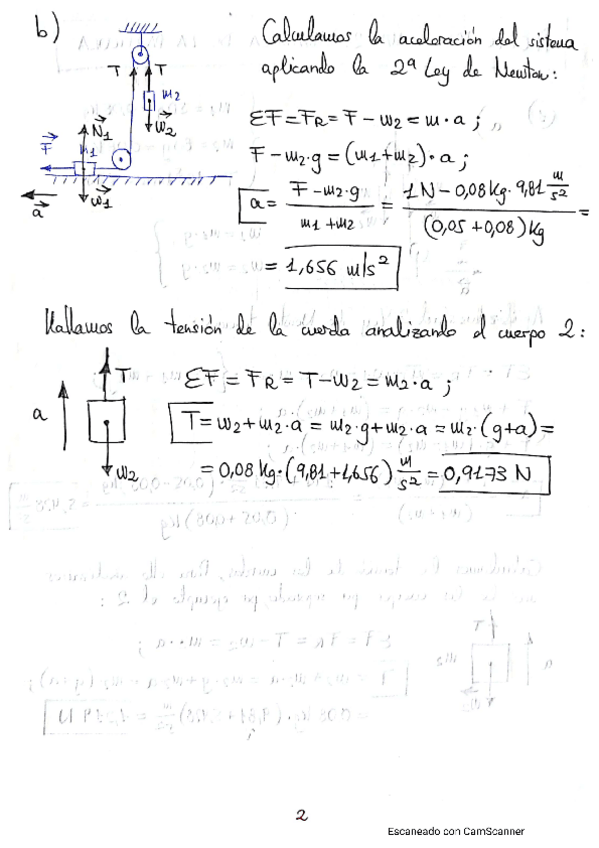 b)
T T
m2
w2
N1
F m1
w1
a
Calculamos la aceleración del sistema
aplicando la 2ª Ley de Newton:
ΣF = FR = F - w2 = m · a ;
F - m2 · g = (m1 + m2) · a ;
a = F - m2 · g / m1 + m2 = 1N - 0,08 Kg · 9,81 m/s² / (0,05 + 0,08) Kg =
= 1,656 m/s²
Hallamos la tensión de la cuerda analizando el cuerpo 2:
a T w2
ΣF = FR = T - w2 = m2 · a ;
T = w2 + m2 · a = m2 · g + m2 · a = m2 · (g + a) =
= 0,08 Kg · (9,81 + 1,656) m/s² = 0,9173 N
2
Escaneado con CamScanner